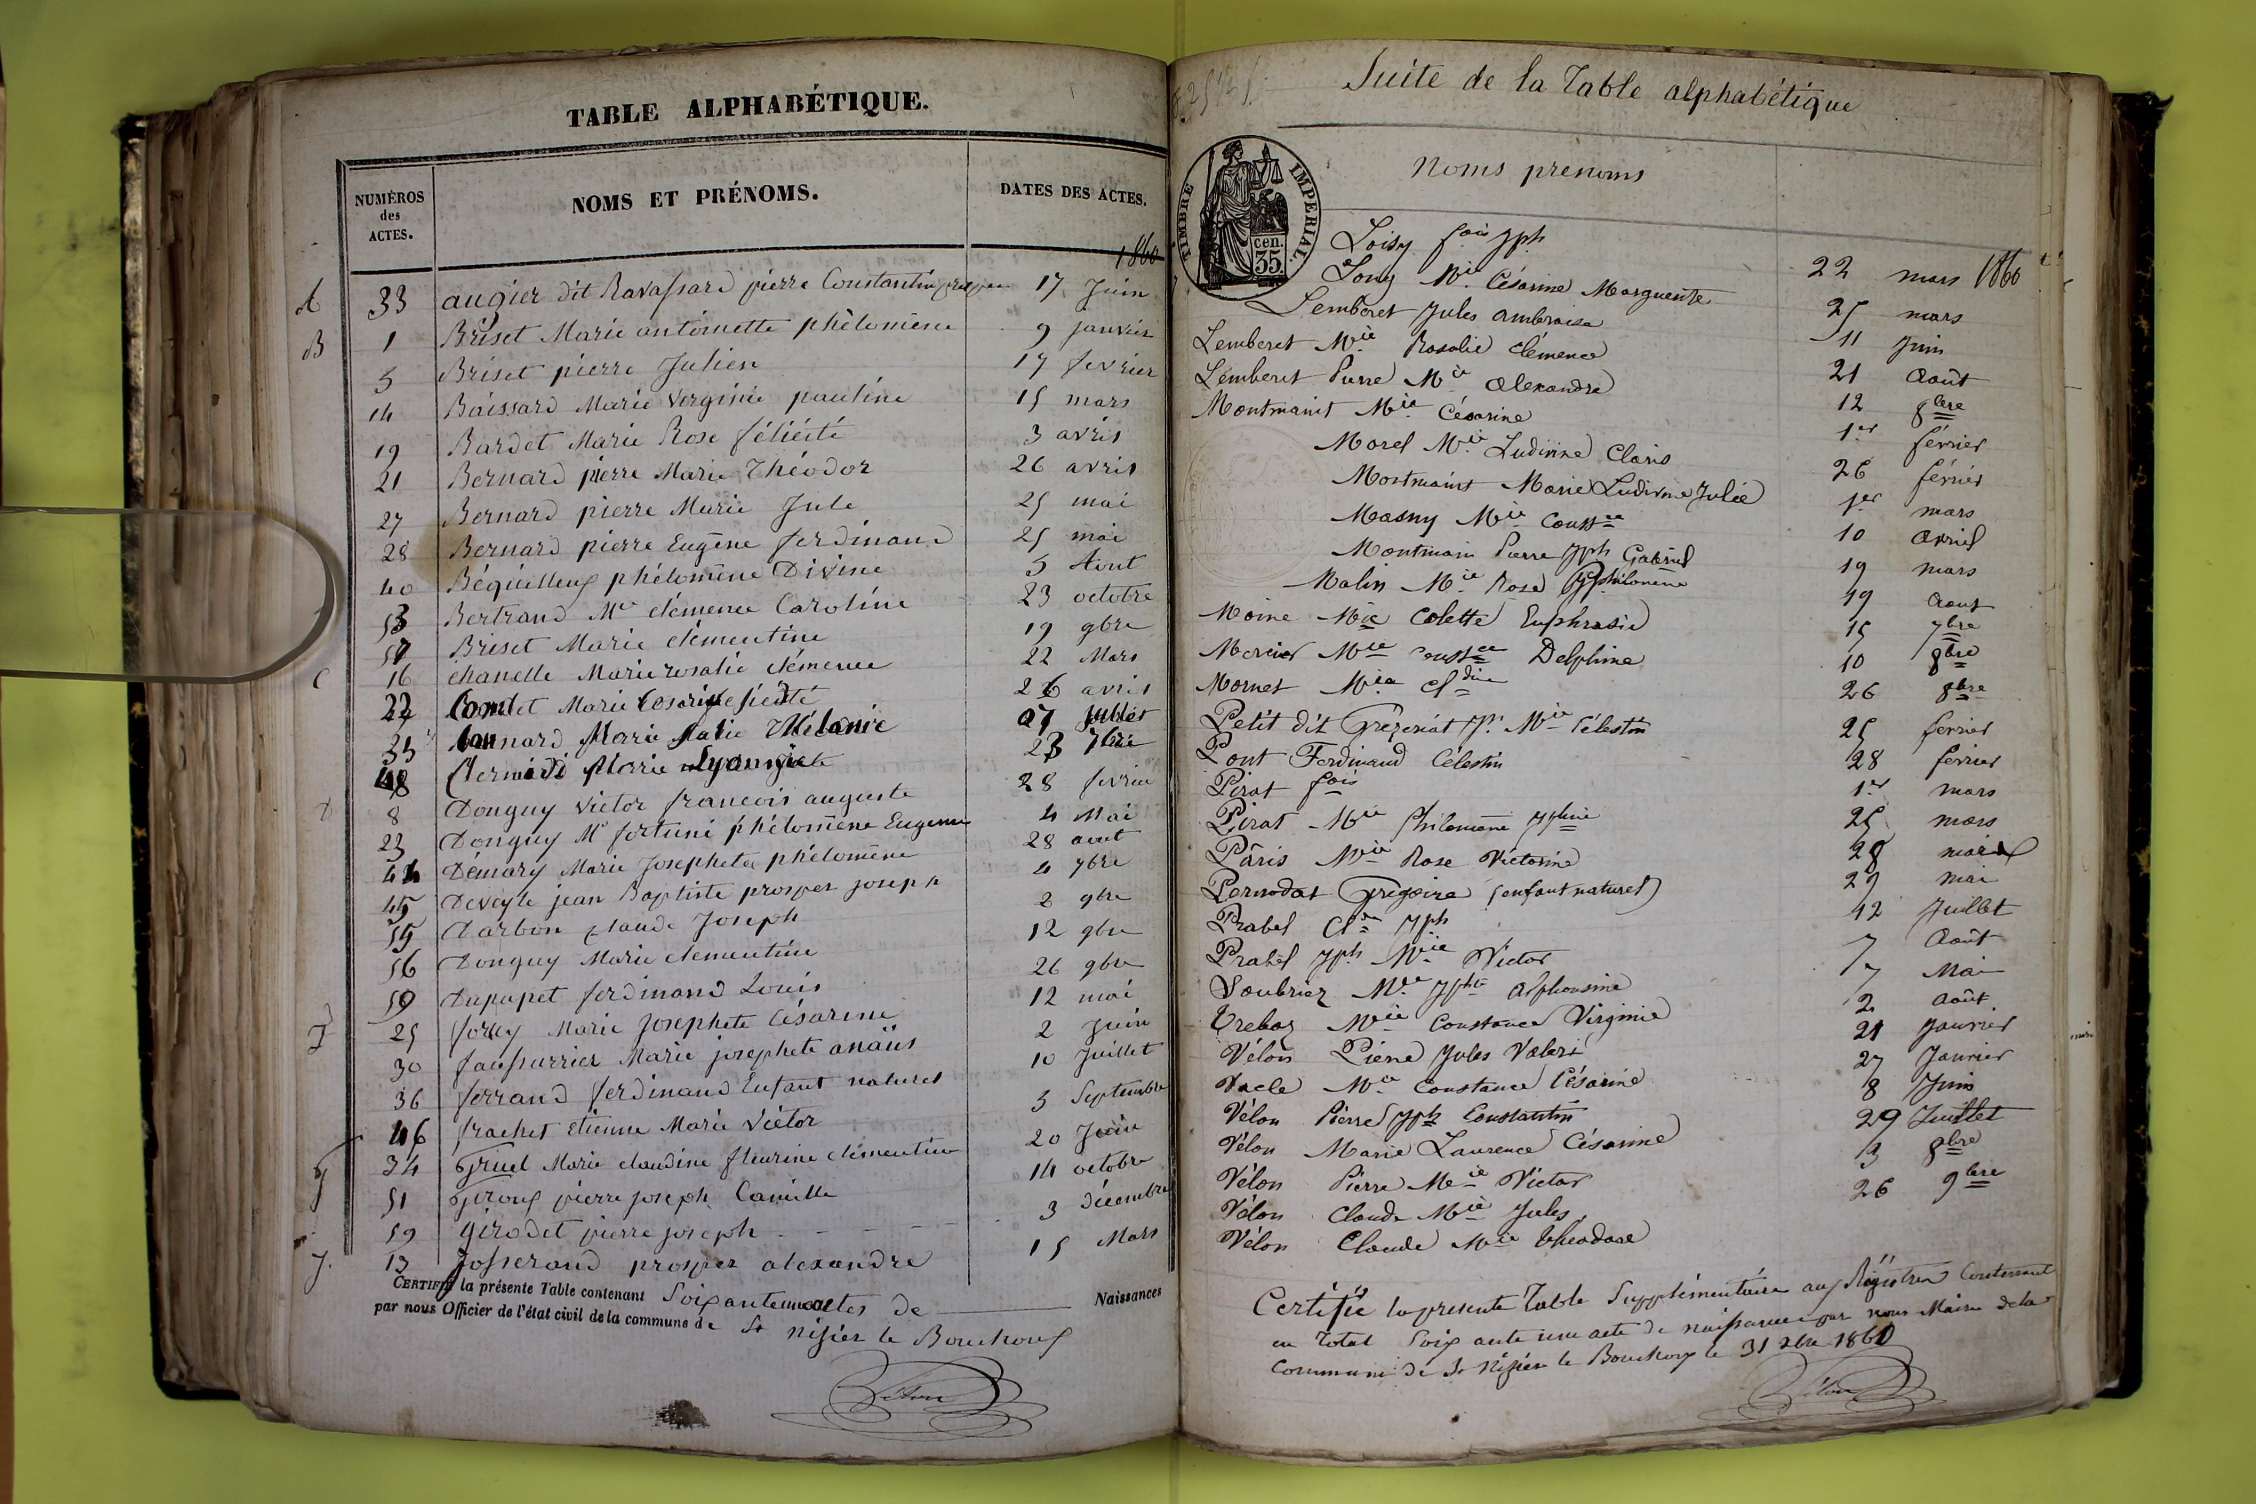 TABLE ALPHABÉTIQUE.
NUMÉROS des ACTES.
NOMS ET PRÉNOMS.
DATES DES ACTES.
1860
A 33 augier dit Ravassard pierre Constantin 17 Juin
B 1 Briset Marie antoinette phélomène 9 janvier
5 Briset pierre Julien 17 fevrier
14 Baissard Marie Virginie pauline 15 mars
19 Bardet Marie Rose félicité 3 avril
21 Bernard pierre Marie Théodor 26 avril
27 Bernard pierre Marie Jule 25 mai
28 Bernard pierre Eugène ferdinand 25 mai
40 Béguilleux phélomène Divine 5 Aout
53 Bertrand Mie clémence Caroline 23 octobre
57 Briset Marie clémentine 19 9bre
C 16 chanelle Marie rosalie clémence 22 Mars
22 Marie 26 avril
35 Marie Mélanie 27 Juillet
48 Marie 23 7bre
D 8 Donguy victor francois auguste 28 fevrier
23 Donguy Mie fortuné phélomène Eugenne 4 Mai
44 Démary Marie Josephete phélomène 28 aout
45 Deveyle jean Baptiste prosper joseph 4 7bre
55 Darbon claude Joseph 2 9bre
56 Donguy Marie clementine 12 9bre
59 Dupupet ferdinand Louis 26 9bre
F 25 forey Marie Josephete Césarine 12 mai
30 faussurrier Marie josephete anaïs 2 Juin
36 ferrand ferdinand Enfant naturel 10 Juillet
46 frachet Etienne Marie Victor 5 Septembre
G 34 Gruel Marie claudine fleurine clémentine 20 Juin
51 Giroux pierre joseph Camille 14 octobre
59 girodet pierre joseph 3 décembre
J. 13 Josserand prosper alexandre 15 Mars
CERTIFIÉ la présente Table contenant Soixante une actes de Naissances
par nous Officier de l'état civil de la commune de St Nisier le Bouchoux
Vélon
Suite de la Table alphabétique
TIMBRE IMPERIAL.
cen. 35.
Noms prenoms
Loisy fois Jph 22 mars 1860
Louy Mie Césarine Marguerite 25 mars
Lemberet Jules ambroise 11 Juin
Lemberet Mie Rosalie Clémence 21 Août
Lemberet Pierre Mie Alexandre 12 8bre
Montmaint Mie Césarine 1er février
Morel Mie Ludivine Claris 26 février
Montmaint Marie Ludivine Julie 1er mars
Masny Mie Constce 10 avril
Montmain Pierre Jph Gabriel 19 mars
Malin Mie Rose Philomène 19 Aout
Moine Mie Colette Euphrasie 15 7bre
Mercier Mie Constce Delphine 10 8bre
Mornet Mie Cldine 26 8bre
Petit dit Grézeriat Jh Mie Célestin 25 fevrier
Pont Ferdinand Célestin 28 février
Pirat fois 1er mars
Pirat Mie Philomène Jphine 25 mars
Pâris Mie Rose Victorine 28 mai
Pernodat Grégoire (enfant naturel) 29 mai
Prabel Clde Jph 12 Juillet
Prabel Jph Mie Victor 7 Août
Soubriez Mie Jphte Alphonsine 7 Mai
Treboz Mie Constance Virginie 2 Août
Vélon Pierre Jules Valeri 21 Janvier
Vacle Mie Constance Césarine 27 Janvier
Vélon Pierre Jph Constantin 8 Juin
Vélon Marie Laurence Césarine 29 Juillet
Vélon Pierre Mie Victor 3 8bre
Vélon Claude Mie Jules 26 9bre
Vélon Claude Mie théodore
Certifié la presente Table Supplémentaire aux Régistres Contenant
en total Soixante une acte de naissance par nous Maire de la
Commune de St Nisier le Bouchoux le 31 Xbre 1860
Vélon